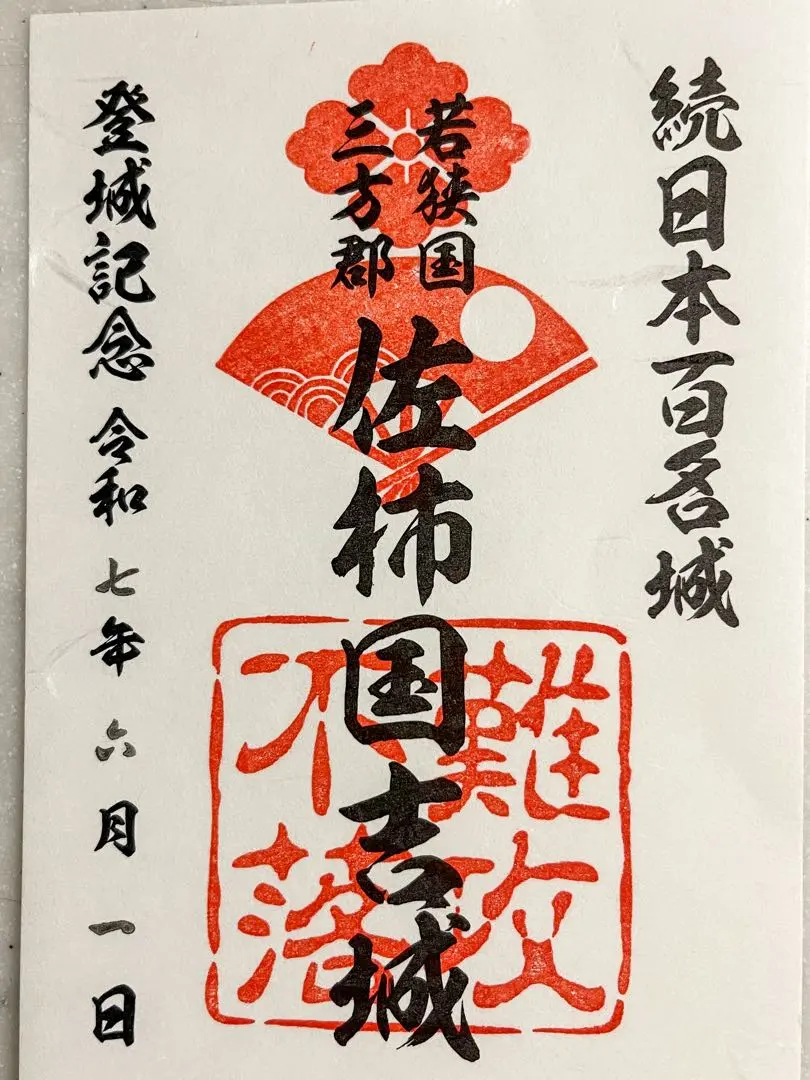 続日本百名城
若狭国
三方郡
佐柿国吉城
難攻
不落
登城記念 令和七年六月一日